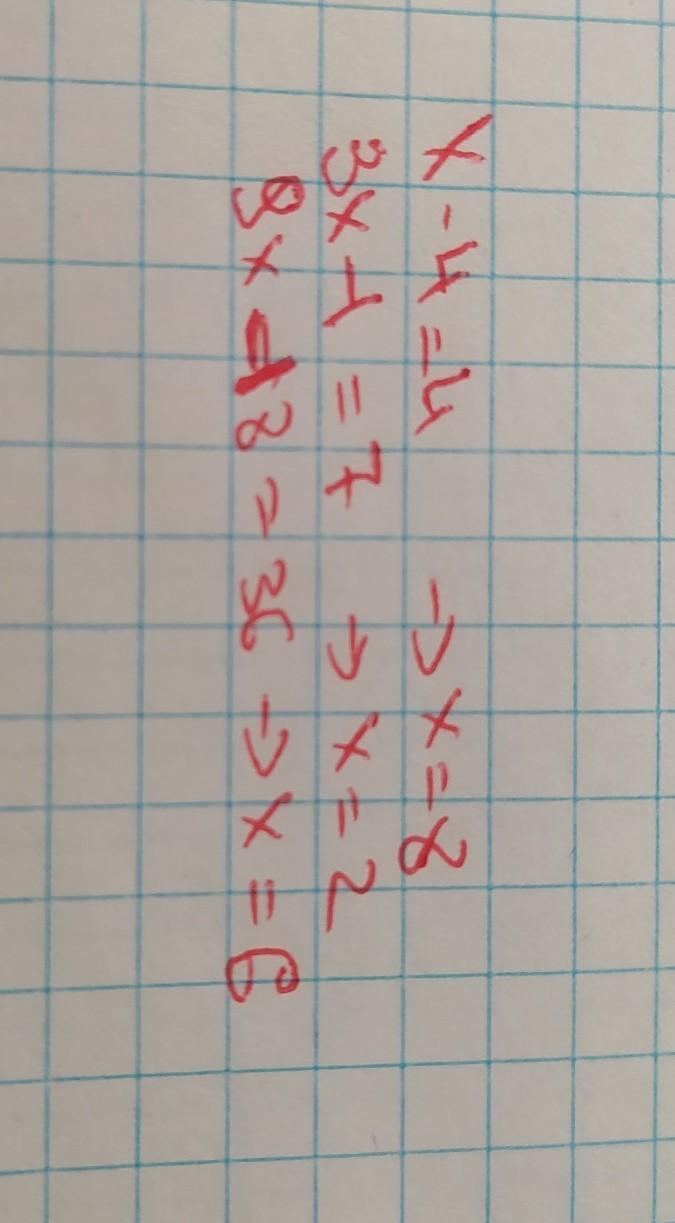 x - 4 = 4 → x = 8
3x - 1 = 7 → x = 2
9x - 18 = 36 → x = 6